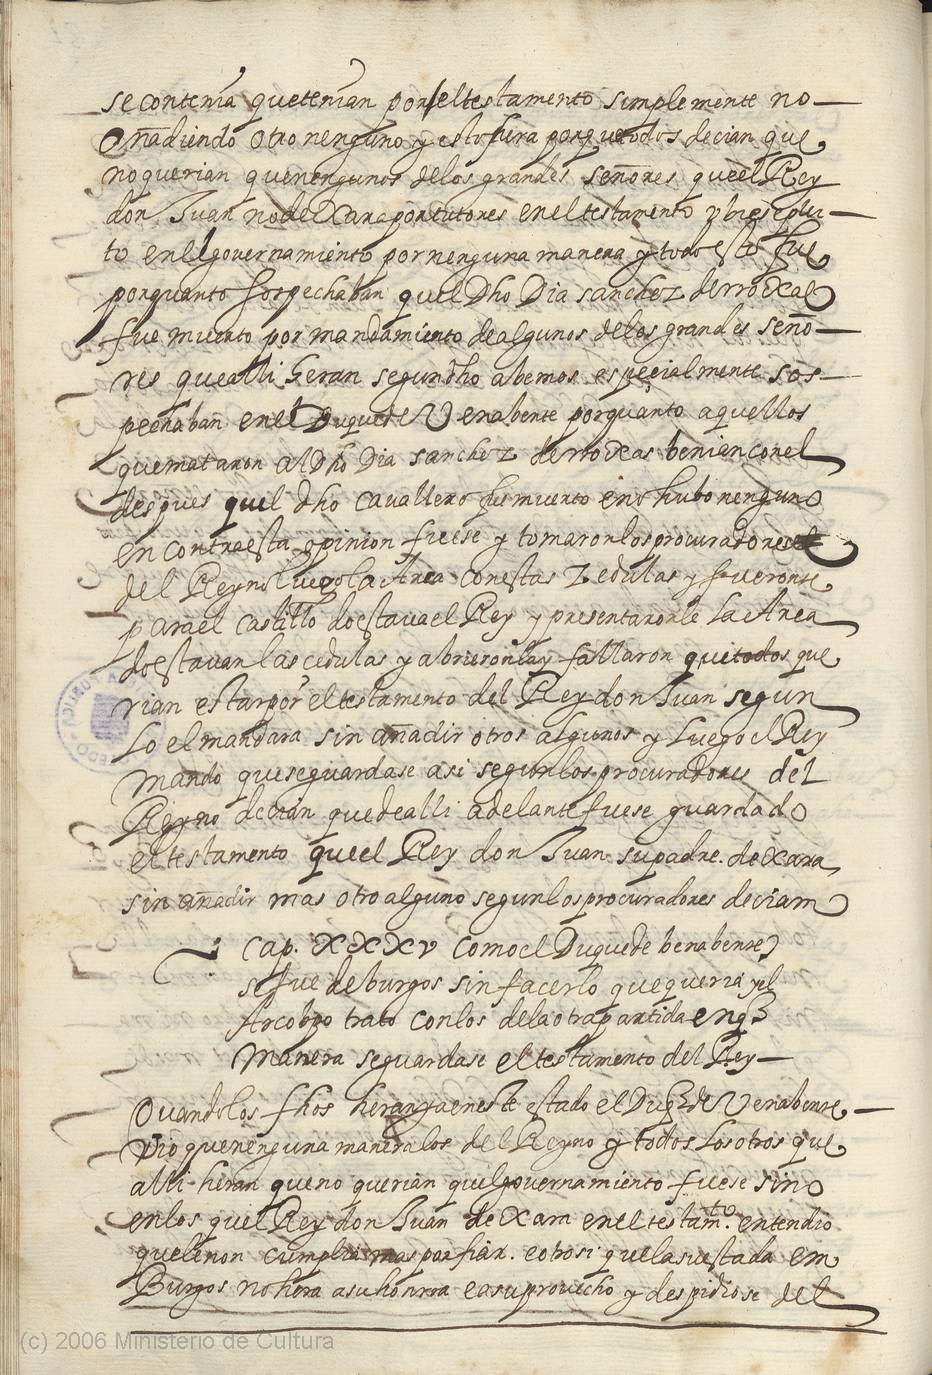 se contenia que tenian por el testamento simplemente no
añadiendo otro nenguno y esto fura porque todos decian que
no querian que nengunos de los grandes señores que el Rey
don Juan no dexara por tutores en el testamento
to en el governamiento por nenguna manera y todo esto fue
por quanto sospechaban quel Dho Dia sanchez de rroxas
fue muerto por mandamiento de algunos de los grandes seño
res que alli heran segun dho abemos especialmente sos
pechaban en el Duque de Venabente por quanto aquellos
que mataron al Dho Dia sanchez de rroxas benian con el
despues quel dho cavallero fue muerto e no hubo nenguno
en contra esta opinion fuese y tomaron los procuradores
del Reyno luego la Arca con estas Zedulas y fueronse
para el castillo do estava el Rey y presentaronle la Arca
do estavan las cedulas y abrieronla y fallaron que todos que
rian estar por el testamento del Rey don Juan segun
lo el mandara sin añadir otros algunos y luego el Rey
mando que se guardase asi segun los procuradores del
Reyno decian que de alli adelante fuese guardado
el testamento que el Rey don Juan su padre dexara
sin añadir mas otro alguno segun los procuradores deciam
cap. XXXV como el Duque de benabente
se fue de burgos sin facerlo que queria y el
Arcobpo trato con los de la otra partida en q
manera se guardase el testamento del Rey
Quando los fhos heran ya en este estado el Duq de Venabente
vio que nenguna manera los del Reyno y todos los otros que
alli heran que no querian quel governamiento fuese sino
en los quel Rey don Juan dexara en el testamto entendio
quel non cumplia mas porfiar. e otrosi que la su estada em
Burgos no hera a su honrra e a su provecho y despidiose del
(c) 2006 Ministerio de Cultura